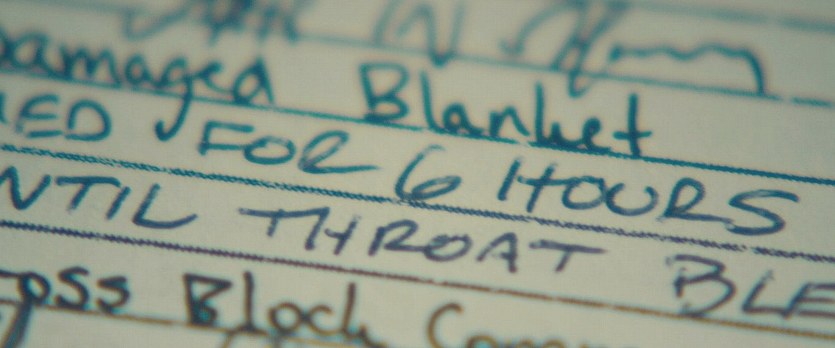 Damaged Blanket
ED FOR 6 HOURS
NTIL THROAT BLE
oss Block